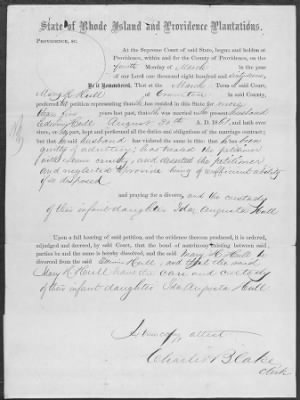 State of Rhode Island and Providence Plantations.
PROVIDENCE, SC.
At the Supreme Court of said State, begun and holden at
Providence, within and for the County of Providence, on the
fourth Monday of March in the year
of our Lord one thousand eight hundred and sixty
Be it Remembered, That at the March Term of said Court,
Mary K. Hull of Cranston in said County,
preferred petition representing that she has resided in this State for more
than five years last past, that she was married to her present husband
Edwin Hull August 20th A. D. 18 and hath ever
since, on her part, kept and performed the duties and obligations of the marriage contract;
but that said husband has violated the same in that he has been
guilty of adultery; has treated the petitioner
with extreme cruelty, and deserted the petitioner
and neglected to provide being of sufficient ability
if so disposed
and praying for a divorce, and the custody
of their infant daughter Ida Augusta Hull
Upon a full hearing of said petition, and the evidence thereon produced, it is ordered,
adjudged and decreed, by said Court, that the bond of matrimony existing between said
parties be and the same is hereby dissolved, and the said Mary K. Hull be
divorced from the said Edwin Hull, and that the said
Mary K. Hull have the care and custody
of their infant daughter Ida Augusta Hull
A true copy attest
Charles Blake
Clerk